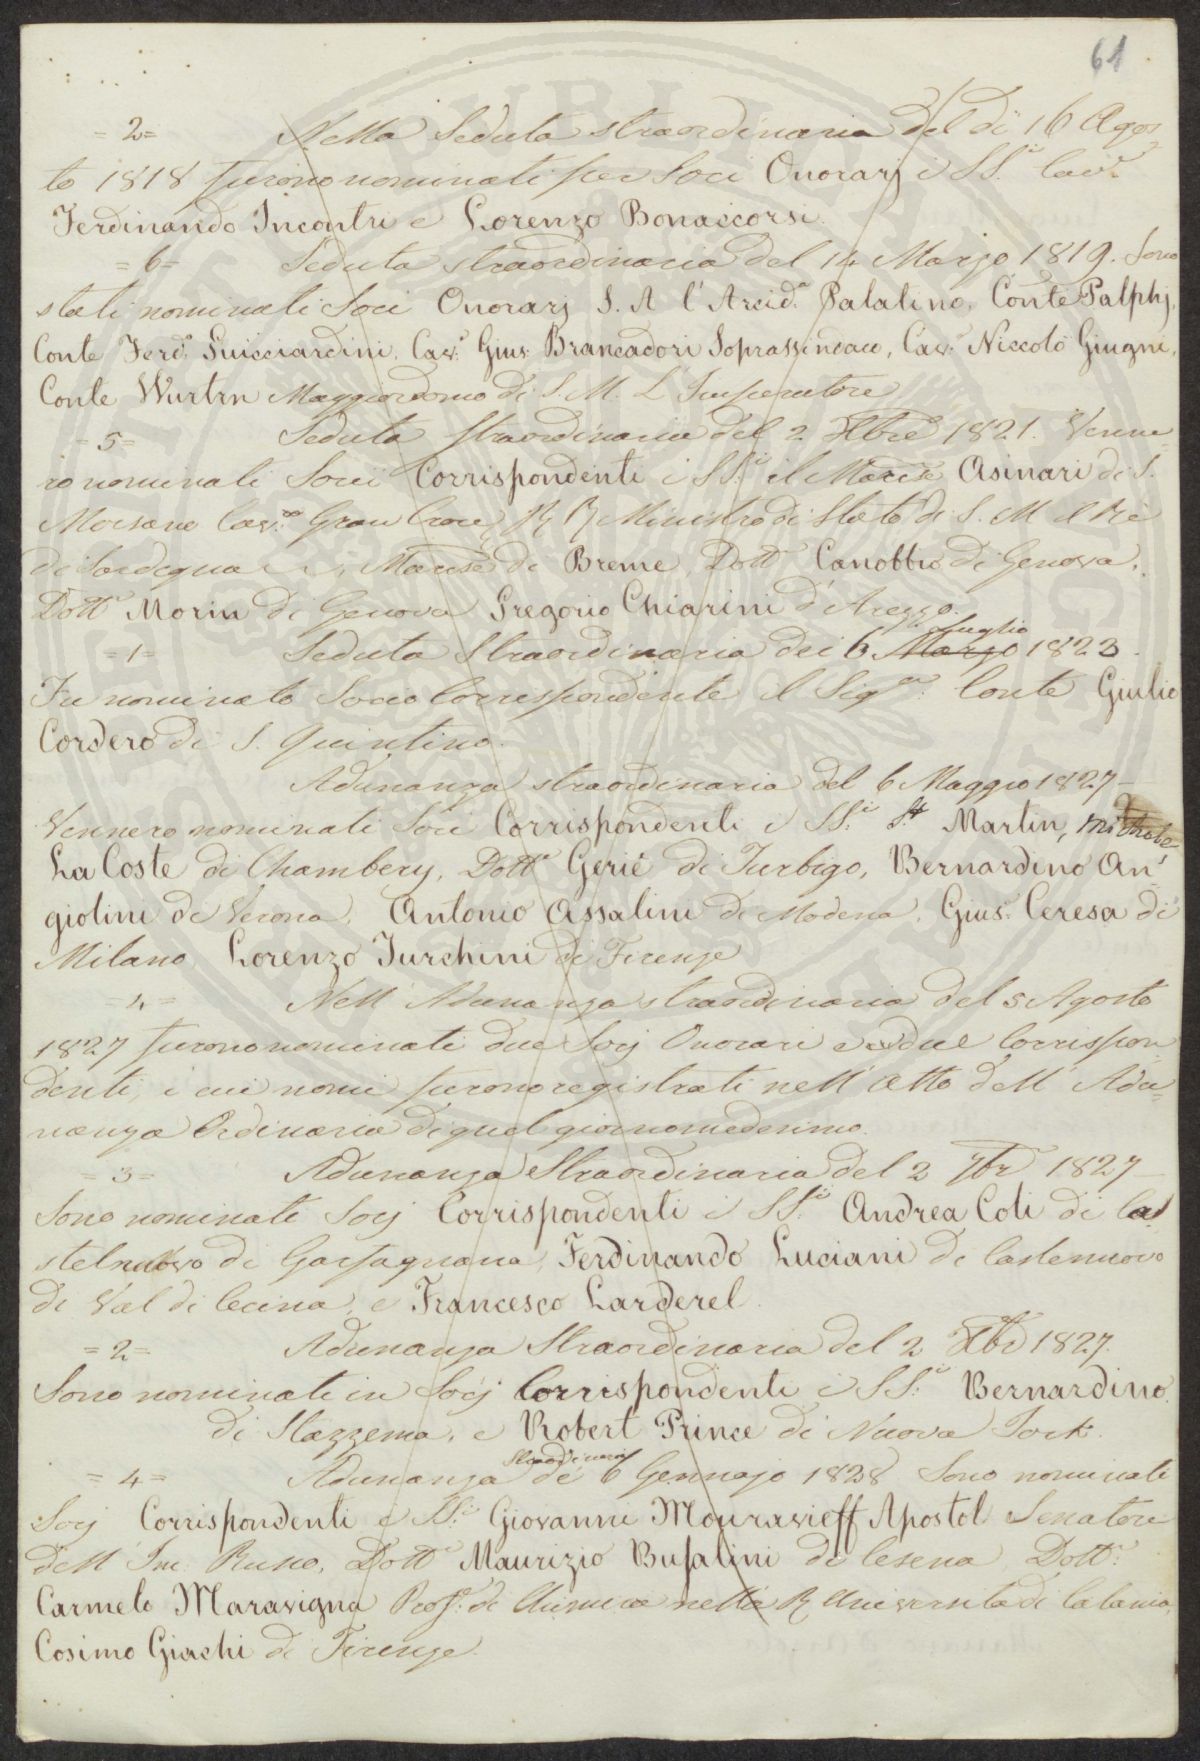 61
=2= Nella Seduta straordinaria del dì 16 Agos
to 1818 furono nominati per Soci Onorarj i SS.i Cav.r
Ferdinando Incontri e Lorenzo Bonaccorsi.
=6= Seduta straordinaria del 14 Marzo 1819. Sono
stati nominati Soci Onorarj S. A l'Arcid.a Palatino, Conte Palphj,
Conte Ferd.o Guicciardini, Cav.r Gius. Brancadori Soprassindaco, Cav.r Niccolò Giugni,
Conte Wurtrn Maggiordomo di S. M. L'Imperatore
=5= Seduta straordinaria del 2 Xbre 1821. Venne=
ro nominati Socii Corrispondenti i SS.i il March.e Asinari di S.
Morsano Cav.re Gran Croce, R R Ministro di Stato di S. M. il Re
di Sardegna, March.e di Breme, Dott. Canobbio di Genova,
Dott.e Morin di Genova Gregorio Chiarini d'Arezzo.
=1= Seduta Straordinaria dei 6 Marzo Luglio 1823.
Fu nominato Socio Corrispondente il Sig.r Conte Giulio
Cordero di S. Quintino.
Adunanza straordinaria del 6 Maggio 1827—
Vennero nominati Soci Corrispondenti i SS.i St Martin, Michele,
La Coste di Chambery, Dott.e Gerié di Turbigo, Bernardino An=
giolini di Verona, Antonio Assalini di Modena, Gius. Ceresa di
Milano, Lorenzo Turchini di Firenze
=4= Nell'Adunanza straordinaria del 5 Agosto
1827 furono nominati due Socj Onorari e due Corrispon
denti, i cui nomi furono registrati nell'Atto dell'Adu=
nanza Ordinaria di quel giorno medesimo.
=3= Adunanza Straordinaria del 2 7br 1827—
Sono nominati Socj Corrispondenti i SS.i Andrea Coli di Cas
stelnuovo di Garfagnana, Ferdinando Luciani di Castelnuovo
di Val di Cecina, e Francesco Larderel.
=2= Adunanza Straordinaria del 2 Xbr 1827.
Sono nominati in Socj Corrispondenti i SS.i Bernardino
di Stazzema, e Robert Prince di Nuova Jork.
=4= Adunanza Straordinaria de' 6 Gennajo 1828. Sono nominati
Socj Corrispondenti i SS.i Giovanni Mouravieff Apostol Senatore
dell'Im. Russo, Dott.e Maurizio Bufalini di Cesena, Dott.
Carmelo Maravigna Prof.e di Chimica nella R Università di Catania,
Cosimo Giachi di Firenze.